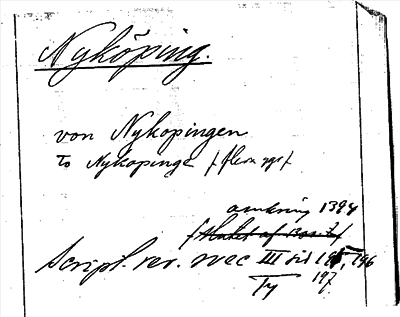 Nyköping.
von Nykopingen
to Nykopinge /flera ggr/
omkring 1394
Script. rer. svec III sid 195, 196
Ty 197